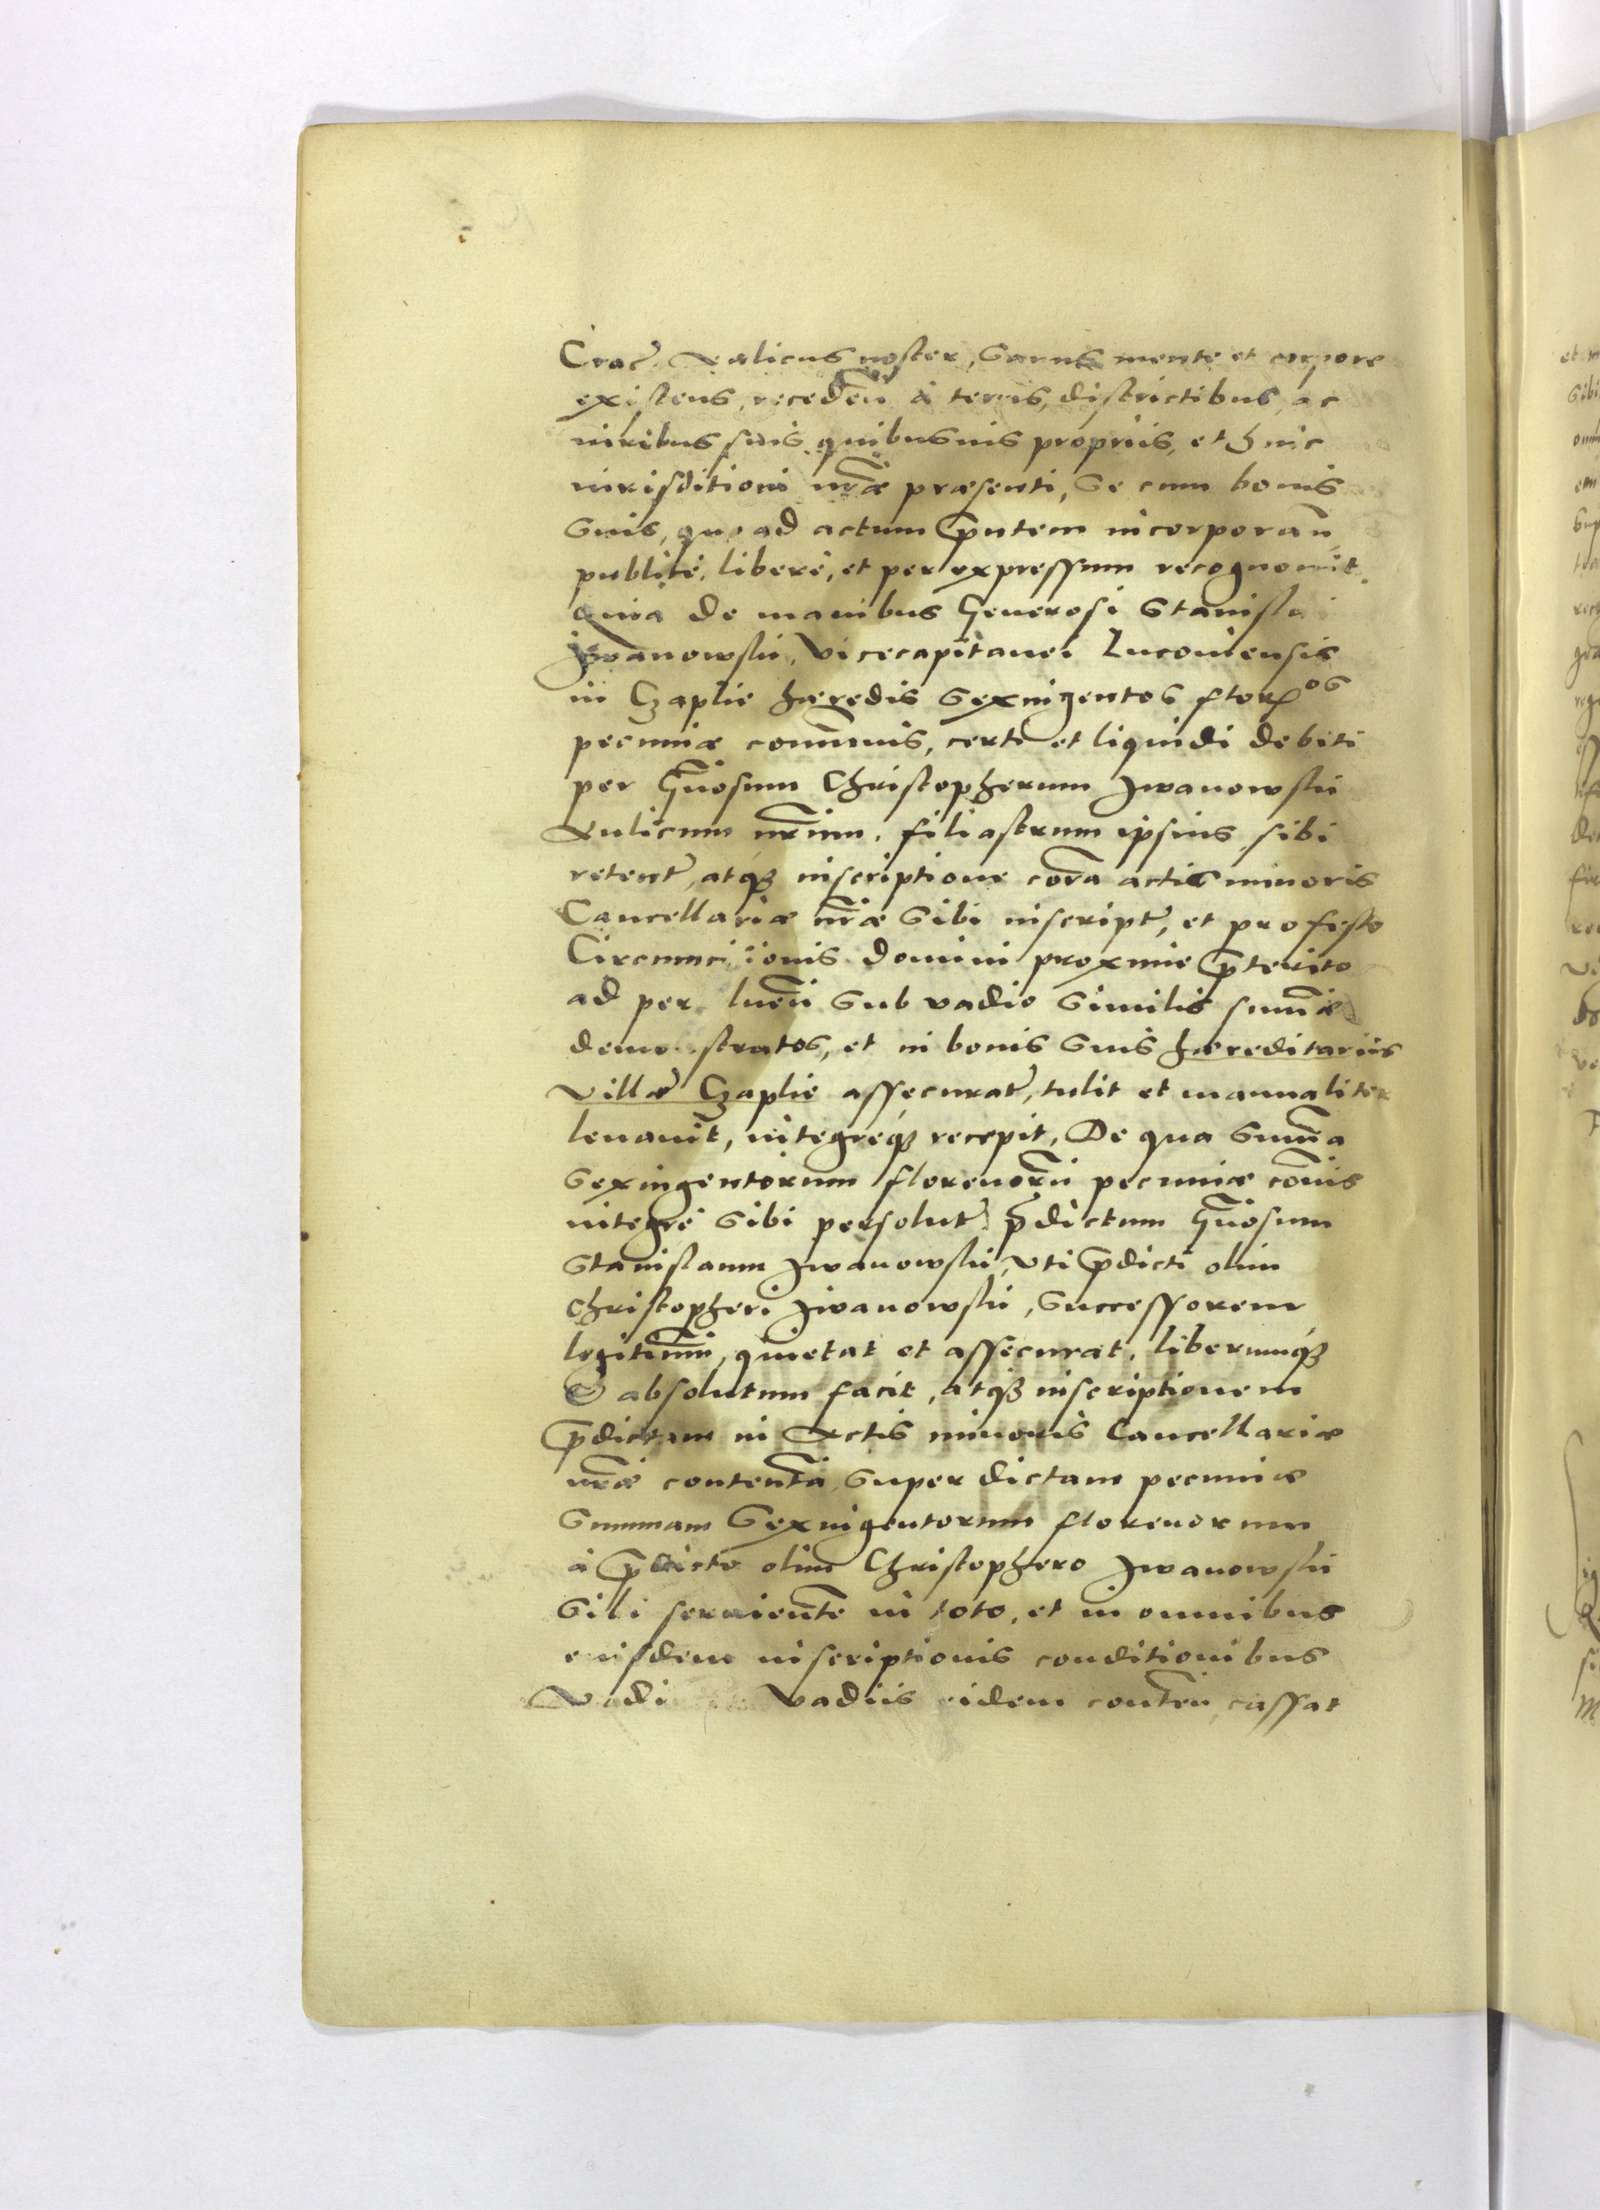 Crac̄. Aulicus noster, sanus mente et corpore
existens, receden̄ à terris, districtibus, ac
iuribus suis quibusuis proprijs, et huic
iurisditioni nr̄æ præsenti, se cum bonis
suis, quo ad actum p̄ntem incorporan̄
publicè, liberè, et per expressum recognouit
quia de manibus Generosi Stanisla
Iwanowski, Vicecapitanei Lucouiensis
in Czaplie hæredis sexingentos flor^os
pecuniæ communis, certi et liquidi debiti
per Gn̄osum Christopherum Iwanowski
Aulicum nr̄um, filiastrum ipsius sibi
retent̄, atq₃ inscriptione cora actis minoris
Cancellariæ nr̄æ sibi inscript̄, et pro festo
Circumci ionis domini proxime p̄terito
ad per luen̄ sub vadio similis summæ
demo stratos, et in bonis suis hæreditarijs
Villæ Czaplie assecurat̄, tulit et manualiter
leuauit, integreq₃ recepit, De qua summa
sexingentorum florenorū pecuniæ cōmis
integrè sibi persolut̄ p̄dictum Gn̄osum
Stanislaum Iwanowski, vti p̄dicti olim
Christopheri Iwanowski, successorem
legitimū, quietat et assecurat, liberumq₃
& absolutum facit, atq₃ inscriptionem
p̄dictam in Actis minoris Cancellariæ
nr̄æ contentā super dictam pecuniæ
summam sexingentorum florenorum
à p̄dicto olim Christophero Iwanowski
sibi seruientē in toto, et in omnibus
eiusdem inscriptionis conditionibus
Vadi Vadijs ibidem conten̄ cassat